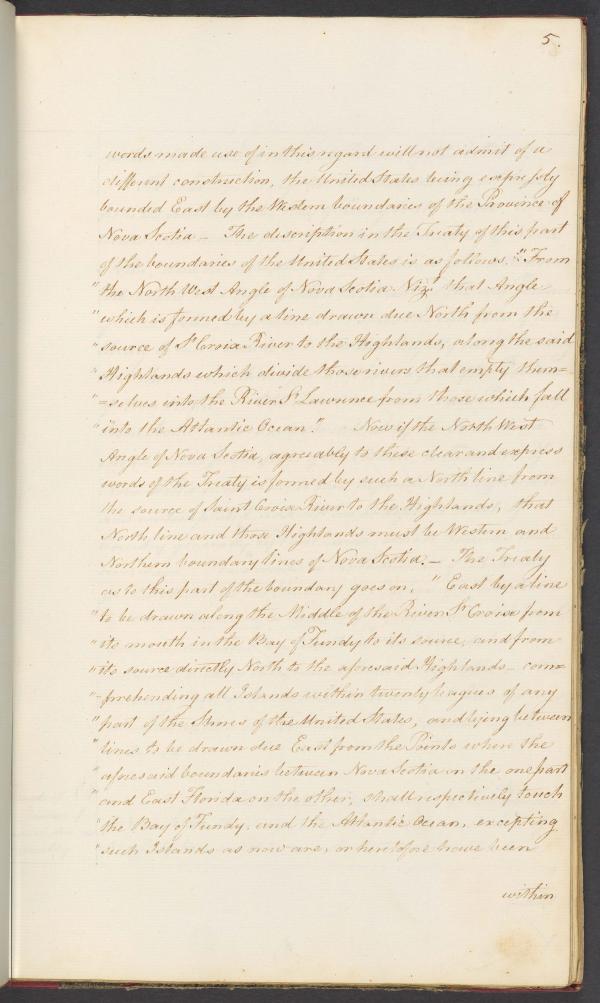 5.
words made use of in this regard will not admit of a
different construction, the United States being expressly
bounded East by the Western boundaries of the Province of
Nova Scotia – The description in the Treaty of this part
of the boundaries of the United States is as follows. "From
" the North West Angle of Nova Scotia Viz.t that Angle
" which is formed by a line drawn due North from the
" source of St Croix River to the Highlands, along the said
" Highlands which divide those rivers that empty them=
" =selves into the River St Lawrence from those which fall
" into the Atlantic Ocean". Now if the North West
Angle of Nova Scotia, agreeably to these clear and express
words of the Treaty is formed by such a North line from
the source of Saint Croix River to the Highlands, that
North line and those Highlands must be Western and
Northern boundary lines of Nova Scotia. – The Treaty
as to this part of the boundary goes on, " East by a line
" to be drawn along the Middle of the River St Croix from
" its mouth in the Bay of Fundy to its source, and from
" its source directly North to the aforesaid Highlands – com=
" =prehending all Islands within twenty leagues of any
" part of the Shores of the United States, and lying between
" lines to be drawn due East from the Points where the
" aforesaid boundaries between Nova Scotia on the one part
" and East Florida on the other, shall respectively touch
" the Bay of Fundy, and the Atlantic Ocean, excepting
" such Islands as now are, or heretofore have been
within